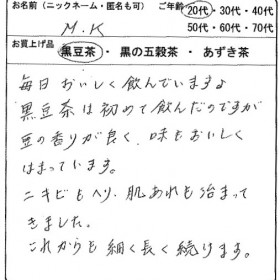 お名前（ニックネーム・匿名も可） ご年齢 20代・30代・40代
M.K 50代・60代・70代
お買上げ品
黒豆茶 ・ 黒の五穀茶 ・ あずき茶
毎日おいしく飲んでいますよ
黒豆茶は初めて飲んだのですが
豆の香りが良く、味もおいしく
はまっています。
ニキビもへり、肌あれも治まって
きました。
これからも細く長く続けます。